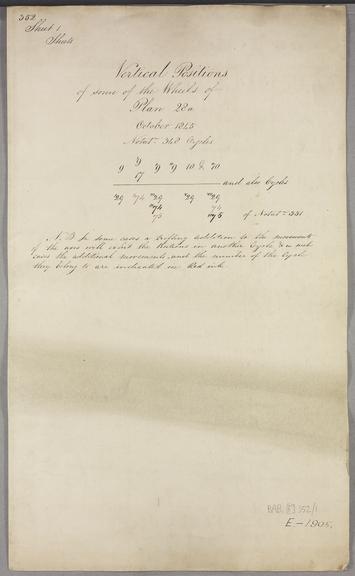 352
Sheet 1
Sheets
Vertical Positions
of some of the Wheels of
Plan 28a
October 1845
Notatn 348 Cycles
9 '9 '9 "9 10 & '10
17
and also Cycles
'29 '74 "29 "29 "'29
"74 74
75 "75 of Notatn 331
N.B. In some cases a trifling addition to the movements
of the axes will exhibit the Rotations in another Cycle & in such
cases the additional movements, and the number of the Cycle
they belong to are indicated in Red ink.
BAB [F] 352/1
E - 1905.